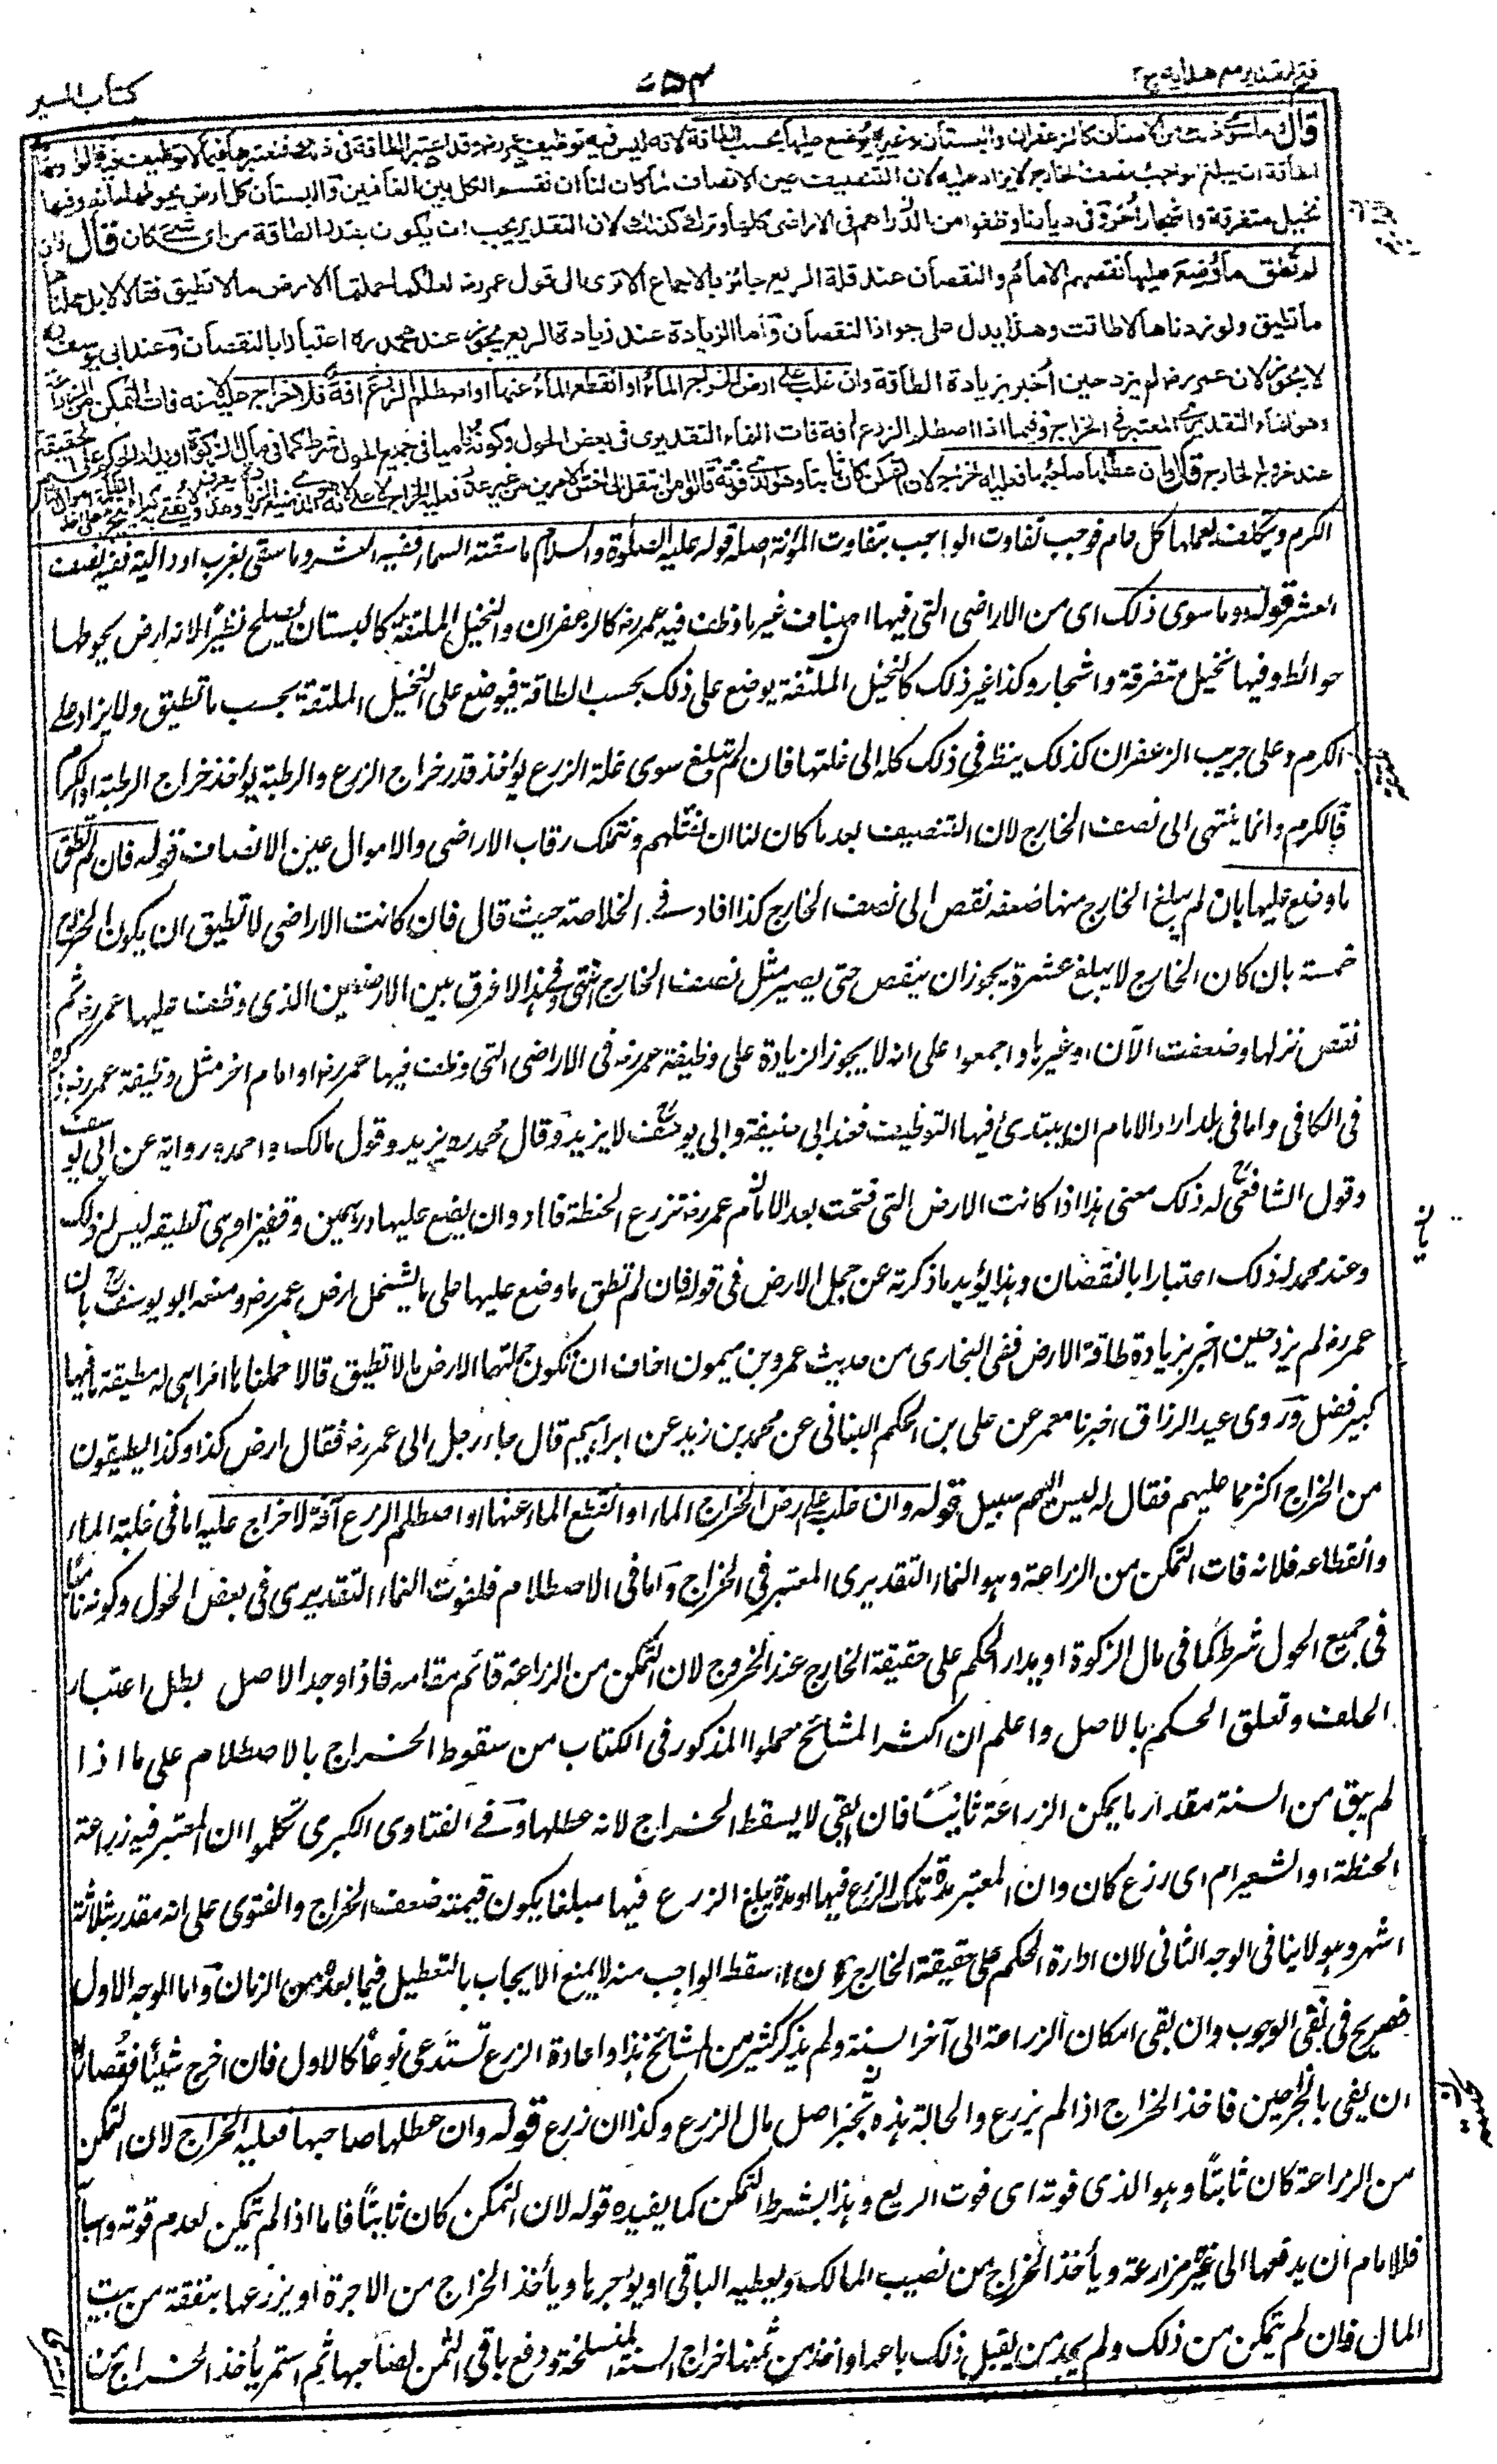 فتح القدير مع هدايه ج٢
٧٥٤
كتاب السير
قال وما سوى ذلك من الاصناف كالزعفران والبستان وغيره يوضع عليها بحسب الطاقة لانه ليس فيه توظيف عمر رضه وقد اعتبر الطاقة في ذلك فنعتبرها فيما لا توظيف فيه قالوا ونهاية
الطاقة ان يبلغ الواجب نصف الخارج لا يزاد عليه لان التنصيف عين الانصاف لما كان لنا ان نقسم الكل بين الغانمين والبستان كل ارض يحوطها حائط وفيها
نخيل متفرقة واشجار أخر وفي ديارنا وظفوا من الدراهم في الاراضي كلها وترك كذلك لان التقدير يجب ان يكون بقدر الطاقة من اى شئ كان قال فان
لم تطق ما وُضِعَ عليها نقصهم الامامُ والنقصان عند قلة الريع جائز بالاجماع الا ترى الى قول عمر رضه لعلكما حملتما الارض ما لا تطيق فقالا لا بل حملناها
ما تطيق ولو زدناها لاطاقت وهذا يدل على جواز النقصان وأما الزيادة عند زيادة الريع يجوز عند محمد ره اعتبارا بالنقصان وعند ابي يوسف ره
لا يجوز لان عمر رضه لم يزد حين أخبر بزيادة الطاقة وان غلب على ارض الخراج الماءُ او انقطع الماءُ عنها او اصطلم الزرعَ افةٌ فلا خراج عليه لانه فات التمكن من الزراعة
وهو النماء التقديرى المعتبر في الخراج وفيما اذا اصطلم الزرع آفة فات النماء التقديرى فى بعض الحول وكونُه ناميا فى جميع الحول شرط كما فى مال الزكوة او يدار الحكم على الحقيقة
عند خروج الخارج قال وان عطلها صاحبُها فعليه الخراج لان التمكن كان ثابتا وهو الذى فوته قالوا من انتقل الى اخس الامرين من غير عذر فعليه خراج الاعلى لانه هو الذى ضيع الزيادة وهذا يعرف ولا يفتى به كيلا يتجرأ الظلمة على اخذ اموال الناس
الكرم ويتكلف لعملها كل عام فوجب تفاوت الواجب بتفاوت المؤنة اصله قوله عليه الصلوة والسلام ما سقته السماء ففيه العشر وما سقى بغرب او دالية ففيه نصف
العشر قوله وما سوى ذلك اى من الاراضى التى فيها اصناف غير ما وظف فيه عمر رضه كالزعفران والنخيل الملتفة كالبستان يصلح نظيرا لانه ارض يحوطها
حوائط وفيها نخيل متفرقة واشجار وكذا غير ذلك كالنخيل الملتفة يوضع على ذلك بحسب الطاقة فيوضع على النخيل الملتفة بحسب ما تطيق ولا يزاد على
الكرم وعلى جريب الزعفران كذلك ينظر فى ذلك كله الى غلتها فان لم تبلغ سوى غلة الزرع يؤخذ قدر خراج الزرع والرطبة يؤخذ خراج الرطبة او الكرم
فالكرم وانما ينتهى الى نصف الخارج لان التنصيف بعد ما كان لنا ان نقتلهم ونتملك رقاب الاراضى والاموال عين الانصاف قوله فان لم تطق
ما وضع عليها بان لم يبلغ الخارج منها ضعفه نقص الى نصف الخارج كذا افاد فى الخلاصة حيث قال فان كانت الاراضى لا تطيق ان يكون الخراج
خمسة بان كان الخارج لا يبلغ عشرة يجوز ان ينقص حتى يصير مثل نصف الخارج انتهى وفى هذا لا فرق بين الارضين الذى وظف عليها عمر رضه ثم
نقص نزلها وضعفت الآن او غيرها واجمعوا على انه لا يجوز الزيادة على وظيفة عمر رضه فى الاراضى التى وظف فيها عمر رضه او امام اخر مثل وظيفة عمر رضه ذكره
فى الكافى واما فى بلد اراد الامام ان يبتدئ فيها التوظيف فعند ابى حنيفة وابى يوسف لا يزيد وقال محمد ره يزيد وقول مالك واحمد ورواية عن ابى يوسف
وقول الشافعى له ذلك معنى هذا اذا كانت الارض التى فتحت بعد الامام عمر رضه تزرع الحنطة فاراد ان يضع عليها درهمين وقفيزا وهى تطيقه ليس له ذلك
وعند محمد له ذلك اعتبارا بالنقصان وهذا يؤيد ما ذكرته عن حمل الارض فى قوله فان لم تطق ما وضع عليها على ما يشمل ارض عمر رضه ومنعه ابو يوسف بان
عمر رضه لم يزد حين اخبر بزيادة طاقة الارض ففى البخارى من حديث عمرو بن ميمون اخاف ان تكون حملتما الارض ما لا تطيق قالا حملناها امرا هى له مطيقة ما فيها
كبير فضل وروى عبد الرزاق اخبرنا معمر عن على بن الحكم البنانى عن محمد بن زيد عن ابراهيم قال جاء رجل الى عمر رضه فقال ارض كذا وكذا يطيقون
من الخراج اكثر مما عليهم فقال له ليس اليهم سبيل قوله وان غلب على ارض الخراج الماء او انقطع الماء عنها او اصطلم الزرع آفة لا خراج عليه اما فى غلبة الماء
وانقطاعه فلانه فات التمكن من الزراعة وهو النماء التقديرى المعتبر فى الخراج واما فى الاصطلام فلفوت النماء التقديرى فى بعض الحول وكونه ناميا
فى جميع الحول شرط كما فى مال الزكوة او يدار الحكم على حقيقة الخارج عند الخروج لان التمكن من الزراعة قائم مقامه فاذا وجد الاصل بطل اعتبار
الخلف وتعلق الحكم بالاصل واعلم ان اكثر المشائخ حملوا المذكور فى الكتاب من سقوط الخراج بالاصطلام على ما اذا
لم يبق من السنة مقدار ما يمكن الزراعة ثانيًا فان بقى لا يسقط الخراج لانه عطلها وفى الفتاوى الكبرى تكلموا ان المعتبر فيه زراعة
الحنطة او الشعير ام اى زرع كان وان المعتبر مدة تدرك الزرع فيها او مدة يبلغ الزرع فيها مبلغا يكون قيمته ضعف الخراج والفتوى على انه مقدر بثلاثة
اشهر وهو لا ينافى الوجه الثانى لان ادارة الحكم على حقيقة الخارج وان اسقط الواجب منه لا يمنع الايجاب بالتعطيل فيما بعده من الزمان واما الوجه الاول
فصريح فى نفى الوجوب وان بقى امكان الزراعة الى آخر السنة ولم يذكر كثير من المشائخ هذا واعادة الزرع تستدعى نوعًا كالاول فان اخرج شيئا فقصاراه
ان يفى بالخرجين فاخذ الخراج اذا لم يزرع والحالة هذه يجبر اصل مال الزرع وكذا ان زرع قوله وان عطلها صاحبها فعليه الخراج لان التمكن
من الزراعة كان ثابتًا وهو الذى فوته اى فوت الريع وهذا بشرط التمكن كما يفيده قوله لان التمكن كان ثابتًا فاما اذا لم يتمكن لعدم قوته واسبابه
فللامام ان يدفعها الى غيره مزارعة ويأخذ الخراج من نصيب المالك ويعطيه الباقى او يؤجرها ويأخذ الخراج من الاجرة او يزرعها بنفقة من بيت
المال فان لم يتمكن من ذلك ولم يجد من يقبل ذلك باعها واخذ من ثمنها خراج السنة المنسلخة ودفع باقى الثمن لصاحبها ثم استمر يأخذ الخراج من